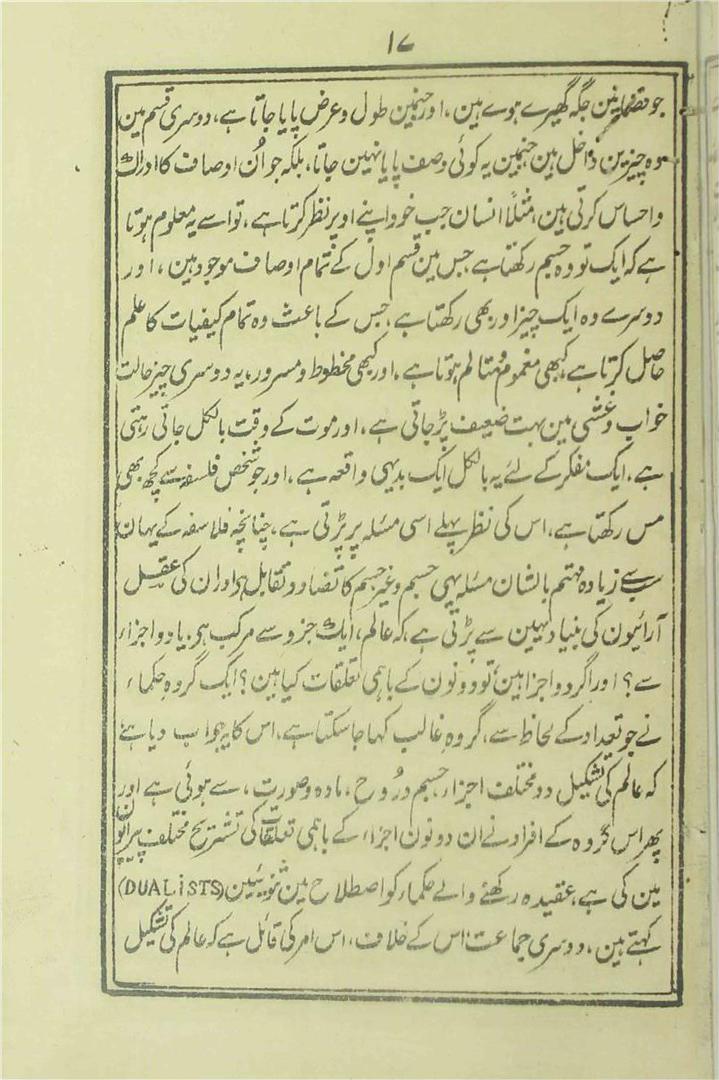 ۱۷
جو فضا مین جگہ گھیرے ہوے ہین، اور جنمین طول و عرض پایا جاتا ہے، دوسری قسم مین
وہ چیزین داخل ہین جنمین یہ کوئی وصف پایا نہین جاتا، بلکہ جو اُن اوصاف کا ادراک
و احساس کرتی ہین، مثلاً انسان جب خود اپنے اوپر نظر کرتا ہے، تو اسے یہ معلوم ہوتا
ہے کہ ایک تو وہ جسم رکھتا ہے جس مین قسم اول کے تمام اوصاف موجود ہین، اور
دوسرے وہ ایک چیز اور بھی رکھتا ہے، جس کے باعث وہ تمام کیفیات کا علم
حاصل کرتا ہے، کبھی مغموم و متالم ہوتا ہے، اور کبھی محظوظ و مسرور، یہ دوسری چیز حالت
خواب و غشی مین بہت ضعیف پڑ جاتی ہے، اور موت کے وقت بالکل جاتی رہتی
ہے، ایک مفکر کے لئے یہ بالکل ایک بدیہی واقعہ ہے، اور جو شخص فلسفہ سے کچھ بھی
مس رکھتا ہے، اس کی نظر پہلے اسی مسئلہ پر پڑتی ہے، چنانچہ فلاسفہ کے یہان
سب سے زیادہ مہتم بالشان مسئلہ یہی جسم و غیر جسم کا تضاد و تقابل ہے اور ان کی عقل
آرائیون کی بنیاد یہین سے پڑتی ہے، کہ عالم، ایک جزو سے مرکب ہے، یا دو اجزاء
سے؟ اور اگر دو اجزا ہین، تو دونون کے باہمی تعلقات کیا ہین؟ ایک گروہِ حکماء
نے جو تعداد کے لحاظ سے، گروہِ غالب کہا جا سکتا ہے، اس کا یہ جواب دیا ہے
کہ عالم کی تشکیل دو مختلف اجزاء، جسم و رُوح، مادہ و صورت، سے ہوئی ہے اور
پھر اس گروہ کے افراد نے ان دونون اجزاء کے باہمی تعلقات کی تشریح مختلف پیرایون
مین کی ہے، عقیدہ رکھنے والے حکماء کو اصطلاح مین ثنویئین (DUALISTS)
کہتے ہین، دوسری جماعت اس کے خلاف، اس امر کی قائل ہے کہ عالم کی تشکیل